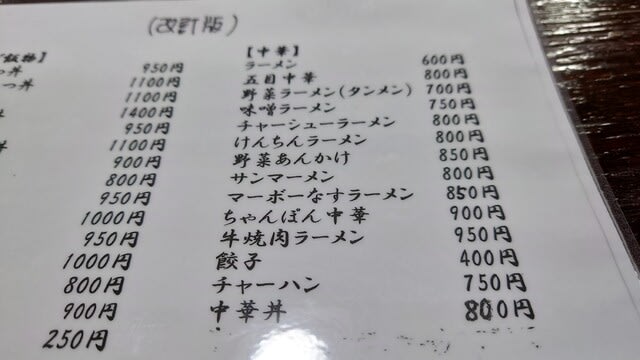 (改訂版)
ご飯物】
950円
つ丼 1100円
1100円
1400円
950円
1100円
900円
800円
950円
1000円
950円
1000円
800円
900円
250円
【中華】
ラーメン 600円
五目中華 800円
野菜ラーメン(タンメン) 700円
味噌ラーメン 750円
チャーシューラーメン 800円
けんちんラーメン 800円
野菜あんかけ 850円
サンマーメン 800円
マーボーなすラーメン 850円
ちゃんぽん中華 900円
牛焼肉ラーメン 950円
餃子 400円
チャーハン 750円
中華丼 800円